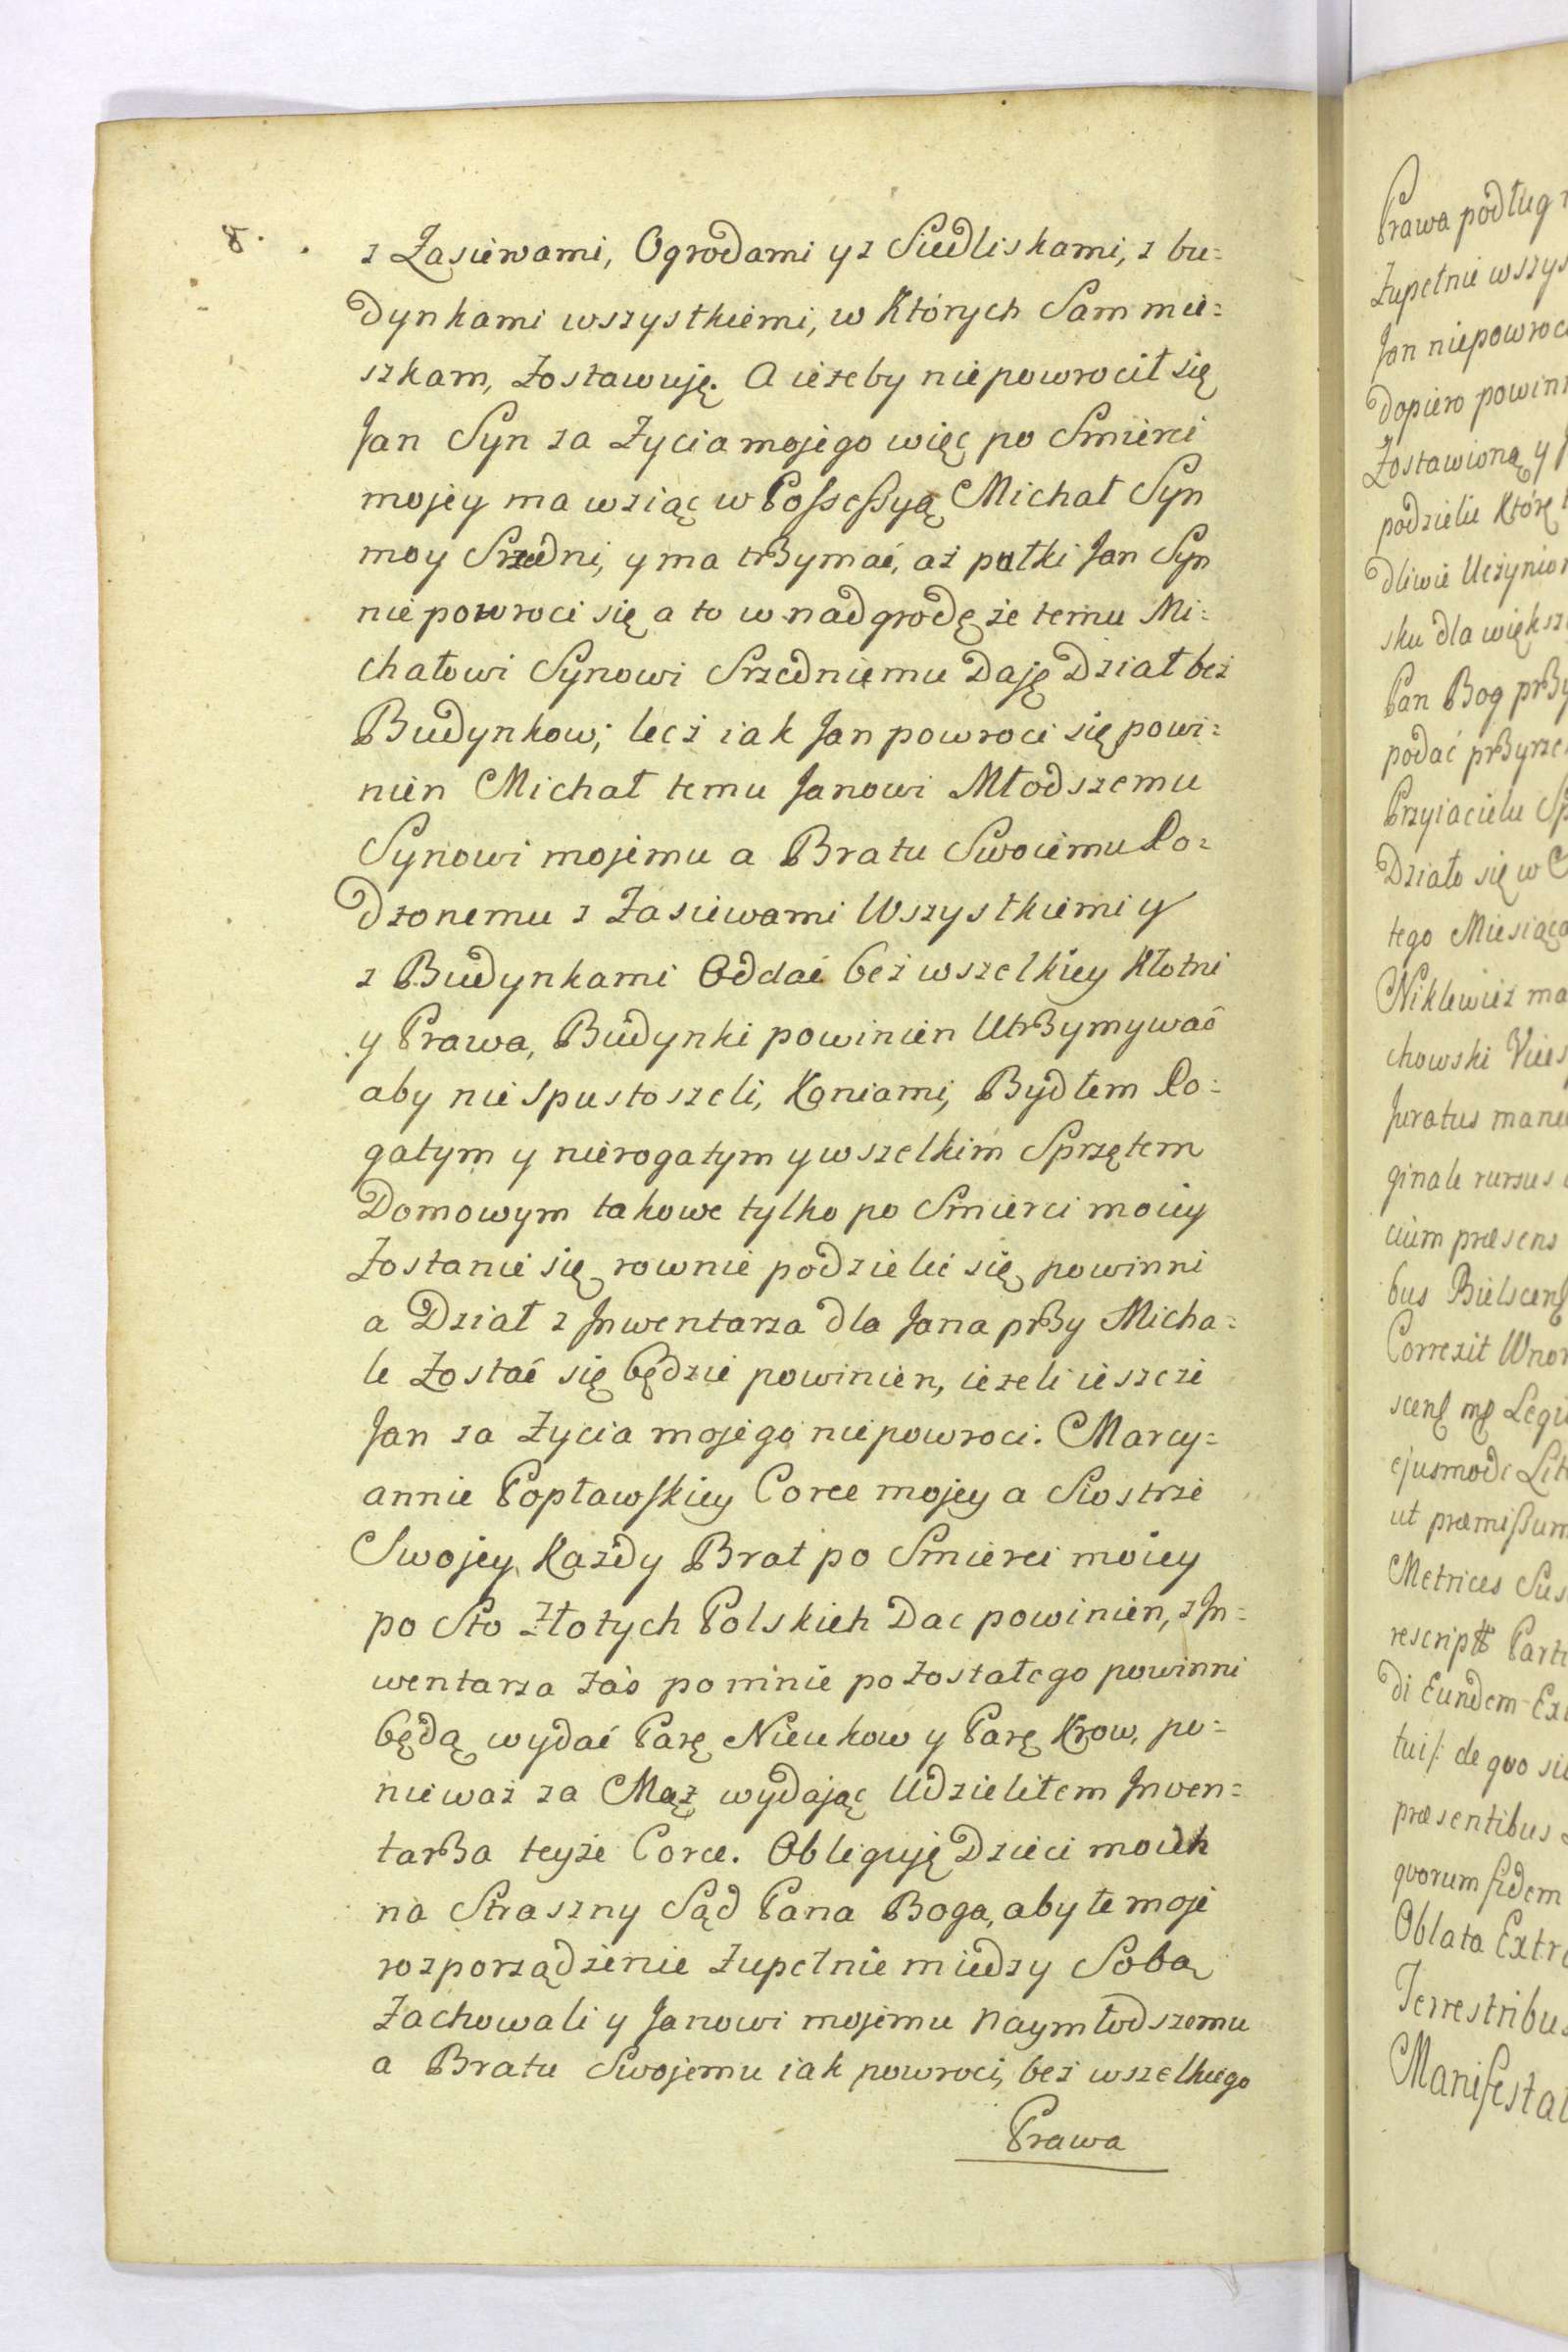 8.
z Zasiewami, Ogrodami y z Siedliskami, z bu=
dynkami wszystkiemi, w Których Sam mie=
szkam, Zostawuję. A ieżeby niepowrocił się
Jan Syn za Życia mojego więc po Smierci
mojey ma wziąc w Possessyą Michał Syn
moy Srzedni, y ma trzymać, aż putki Jan Syn
nie powroci się a to w nadgrodę że temu Mi=
chałowi Synowi Srzedniemu Daję Dział bez
Budynkow; lecż iak Jan powroci się powi=
nien Michał temu Janowi Młodszemu
Synowi mojemu a Bratu Swoiemu Ro=
dzonemu z Zasiewami Wszystkiemi y
z Budynkami Oddać beż wszelkiey Kłotni
y Prawa, Budynki powinien Utrzymywać
aby nie spustoszeli, Koniami, Bydłem Ro=
gatym y nierogatym y wszelkim Sprzętem
Domowym takowe tylko po Smierci moiey
Zostanie się rownie podzielić się powinni
a Dział z Jnwentarza dla Jana przy Micha=
le Zostać się będzie powinien, ieżeli ieszcże
Jan za Życia mojego niepowroci. Marcy=
annie Popławskiey Corce mojey a Siostrże
Swojey Każdy Brat po Smierci moiey
po Sto Złotych Polskich Dac powinien, z Jn=
wentarza żaś po mnie pożostałego powinni
będą wydać Parę Nieukow y Parę Krow, po=
nieważ za Mąż wydając Udzieliłem Jnwen=
tarza teyże Corce. Obliguję Dzieci moich
na Straszny Sąd Pana Boga, aby te moje
rozporządżenie Zupełnie miedzy Sobą
Zachowali y Janowi mojemu Naymłodszemu
a Bratu Swojemu iak powroci, beż wszelkiego
Prawa
Prawa podług
Zupełnie wszys
Jan niepowroc
dopiero powinn
Zostawioną y
podzielić Którę
dliwie Uczynion
sku dla większ
Pan Bog przy
podać przyrze
Przyiacielu Sp
Działo się w
tego Miesiąca
Niklewicz ma
chowski Vices
Juratus manu
ginale rursus
cium præsens
bus Bielscens
Correxit Wnor
scens mp Legi
ejusmodi Lit
ut præmissum
Metrices Sus
rescript Parti
di Eundem Ex
tuis: de quo si
præsentibus
quorum fidem
Oblata Extra
Terrestribus
Manifestat